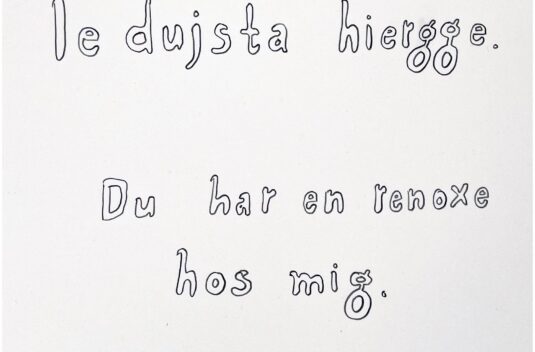 le dujsta hiergge.
Du har en renoxe
hos mig.